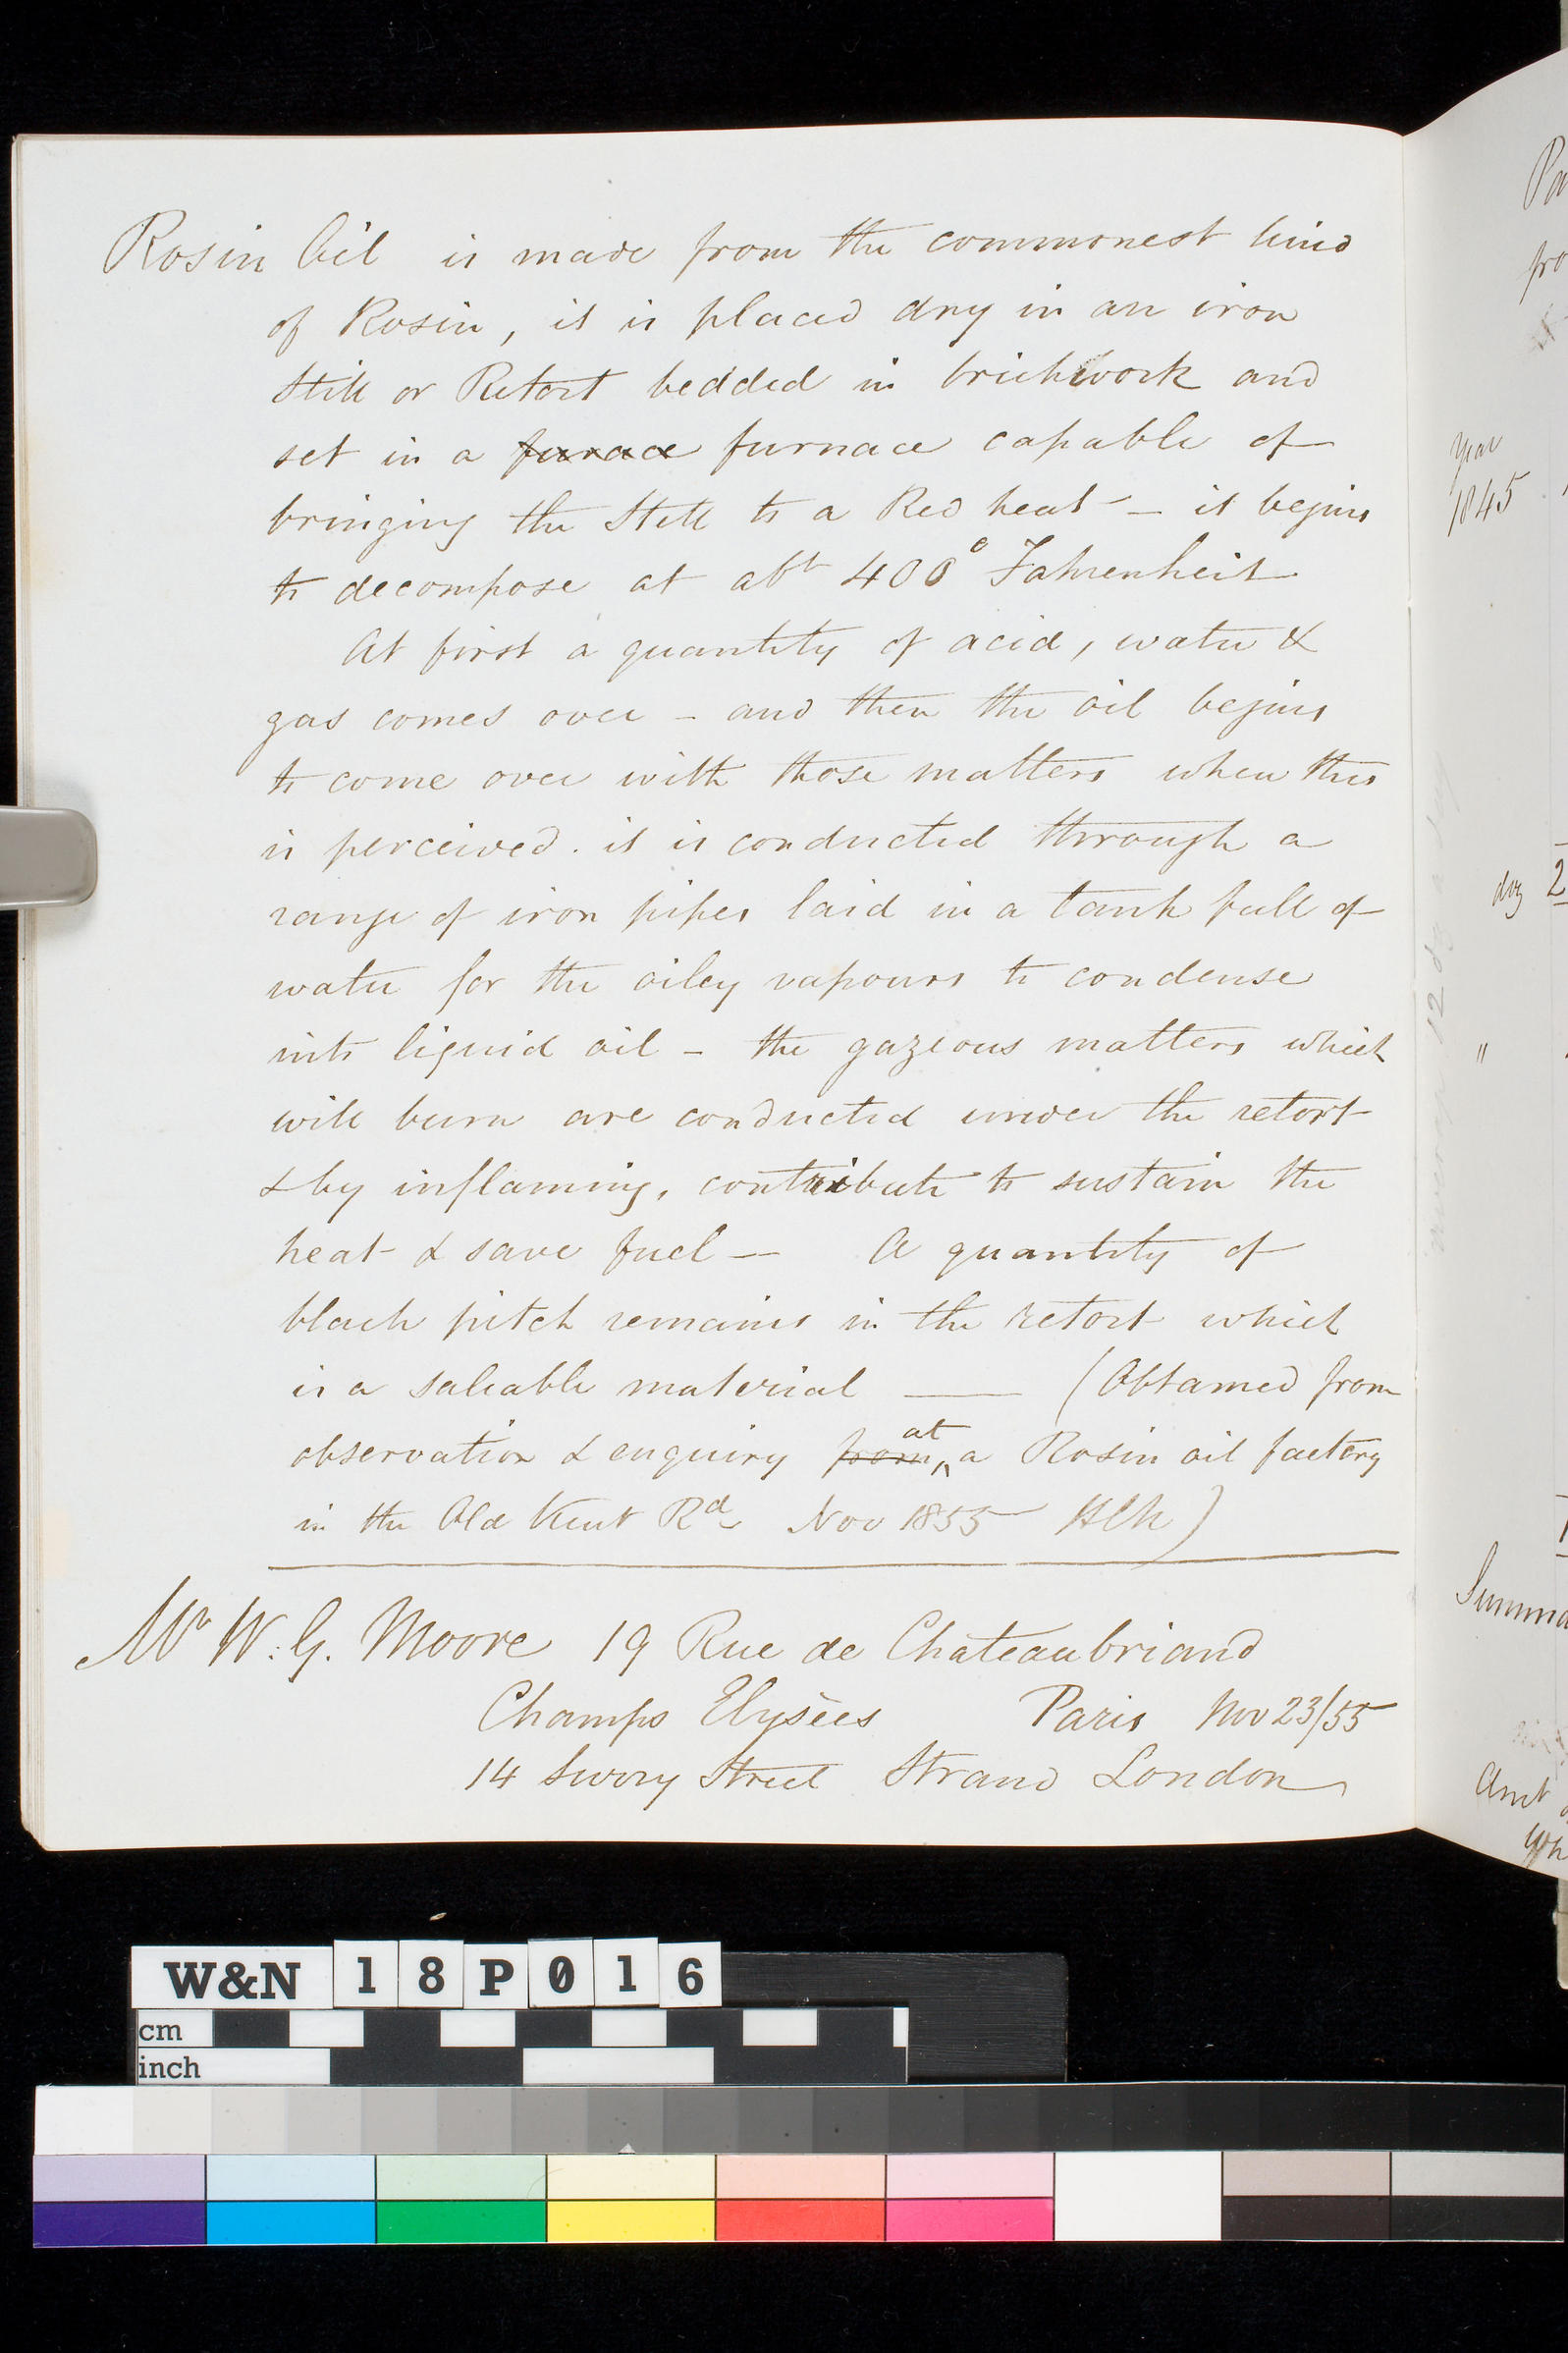 Rosin Oil is made from the commonest kind
of Rosin, it is placed dry in an iron
Still or Retort bedded in brickwork and
set in a furnace furnace capable of
bringing the Still to a Red heat – it begins
to decompose at abt 400° Fahrenheit
At first a quantity of acid, water &
gas comes over – and then the oil begins
to come over with those matters when this
is perceived. it is conducted through a
range of iron pipes laid in a tank full of
water for the oiley vapours to condense
into liquid oil – the gazeous matters which
will burn are conducted under the retort
& by inflaming, contribute to sustain the
heat & save fuel — A quantity of
black pitch remains in the retort which
is a saleable material —— (Obtained from
observation & enquiry from at a Rosin oil factory
in the Old Kent Rd Nov 1855
Mr W. G. Moore 19 Rue de Chateaubriand
Champs Elysèes Paris Nov 23/55
14 Street Strand London
Year
1845
"
W&N 18P016
cm
inch